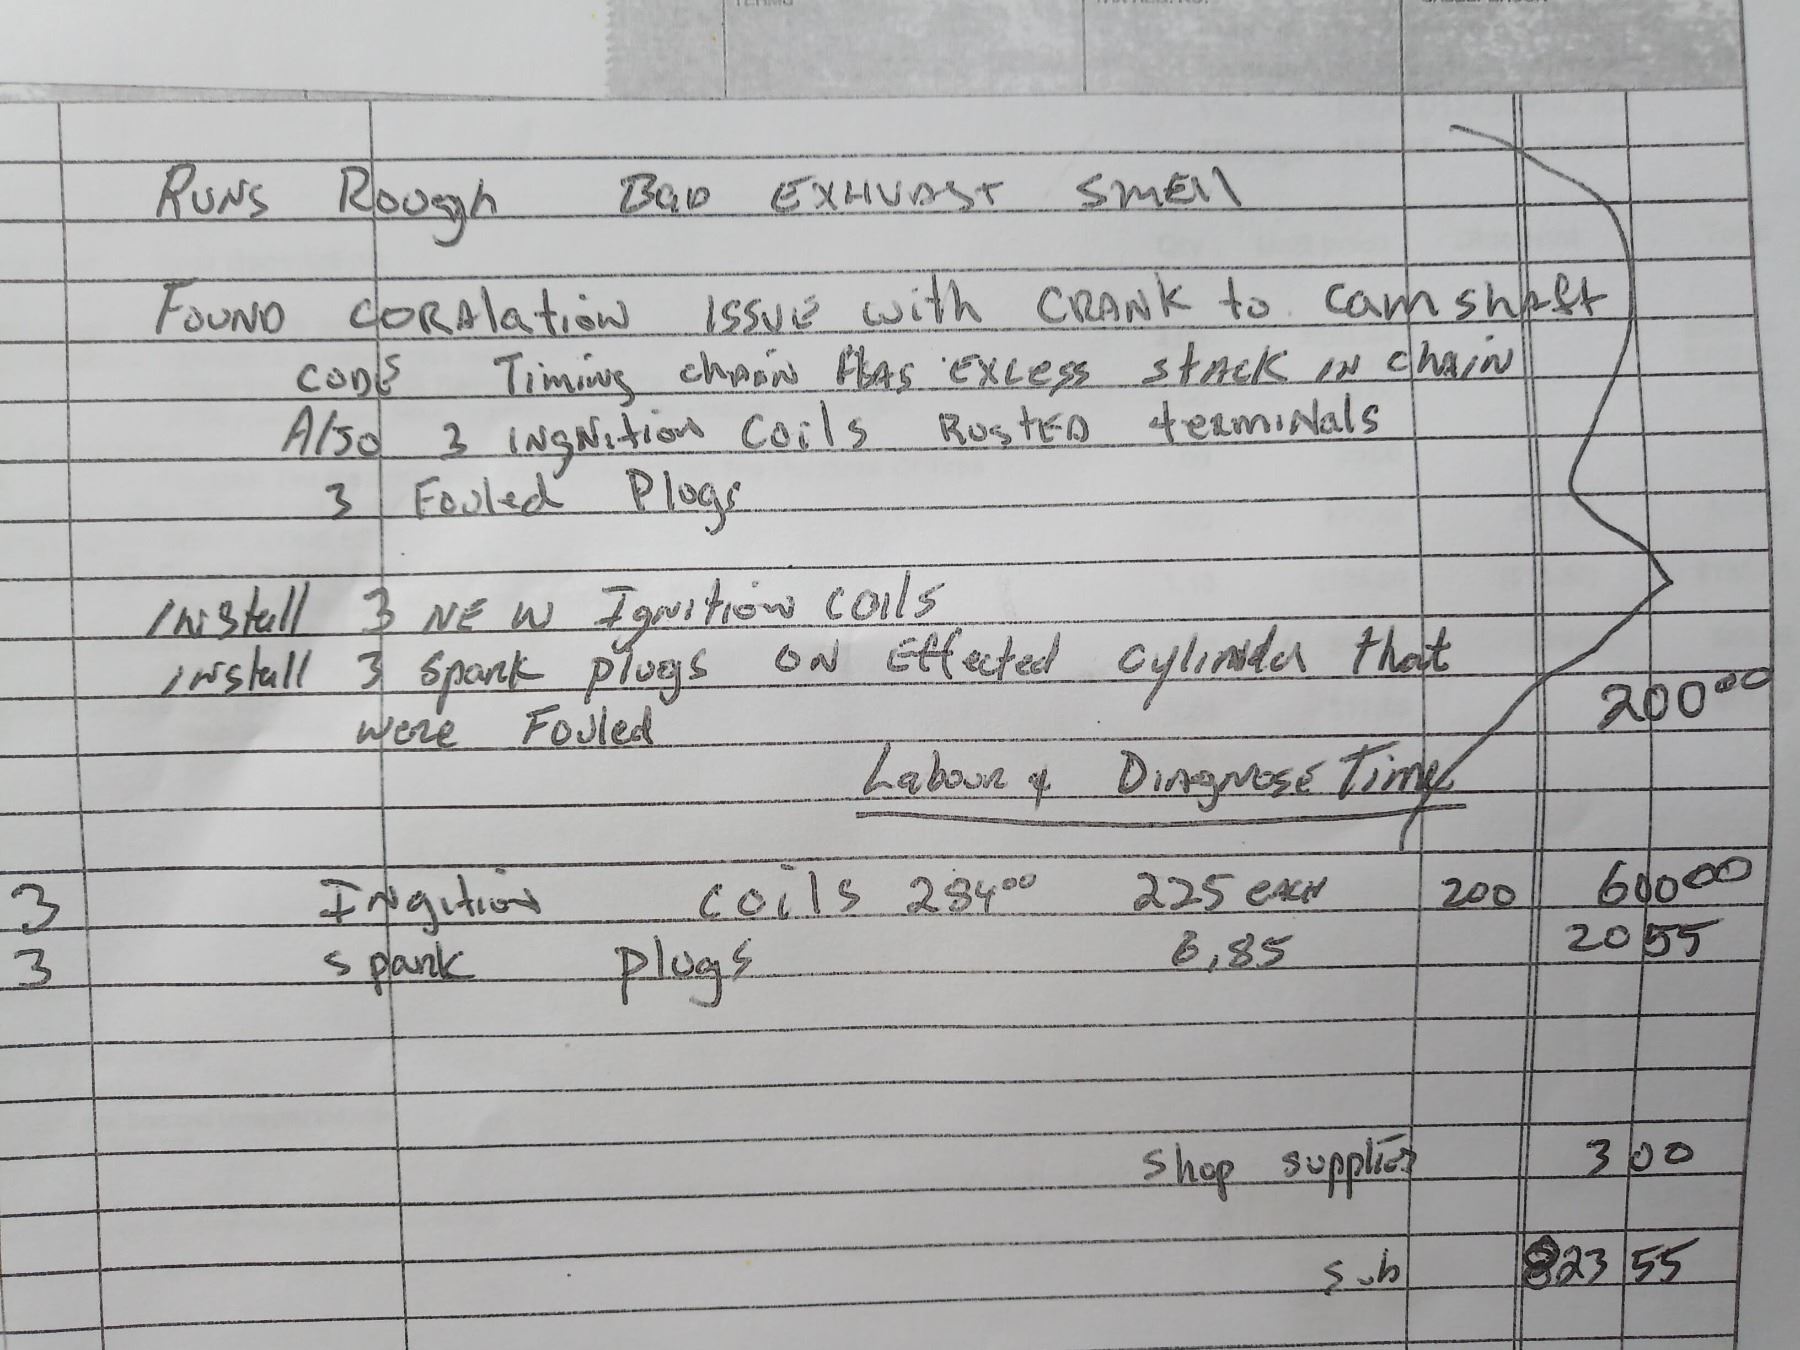 RUNS Rough BAD EXHUAST SMEll
FOUND CORAlation ISSUE with CRANK to camshaft
CODES Timing chain HAS EXCess stACK IN chAIN
Also 3 INgNition Coils RUStED terminals
3 Fouled Plugs
Install 3 NEW Ignition coils
install 3 spark plugs ON Effected cylinder that
were Fouled
200 00
Labour & DIAGNOSE Time
3 INgition coils 284 00 225 each 200 600 00
3 spark plugs 6,85 20 55
shop supplies 3 00
sub 823 55